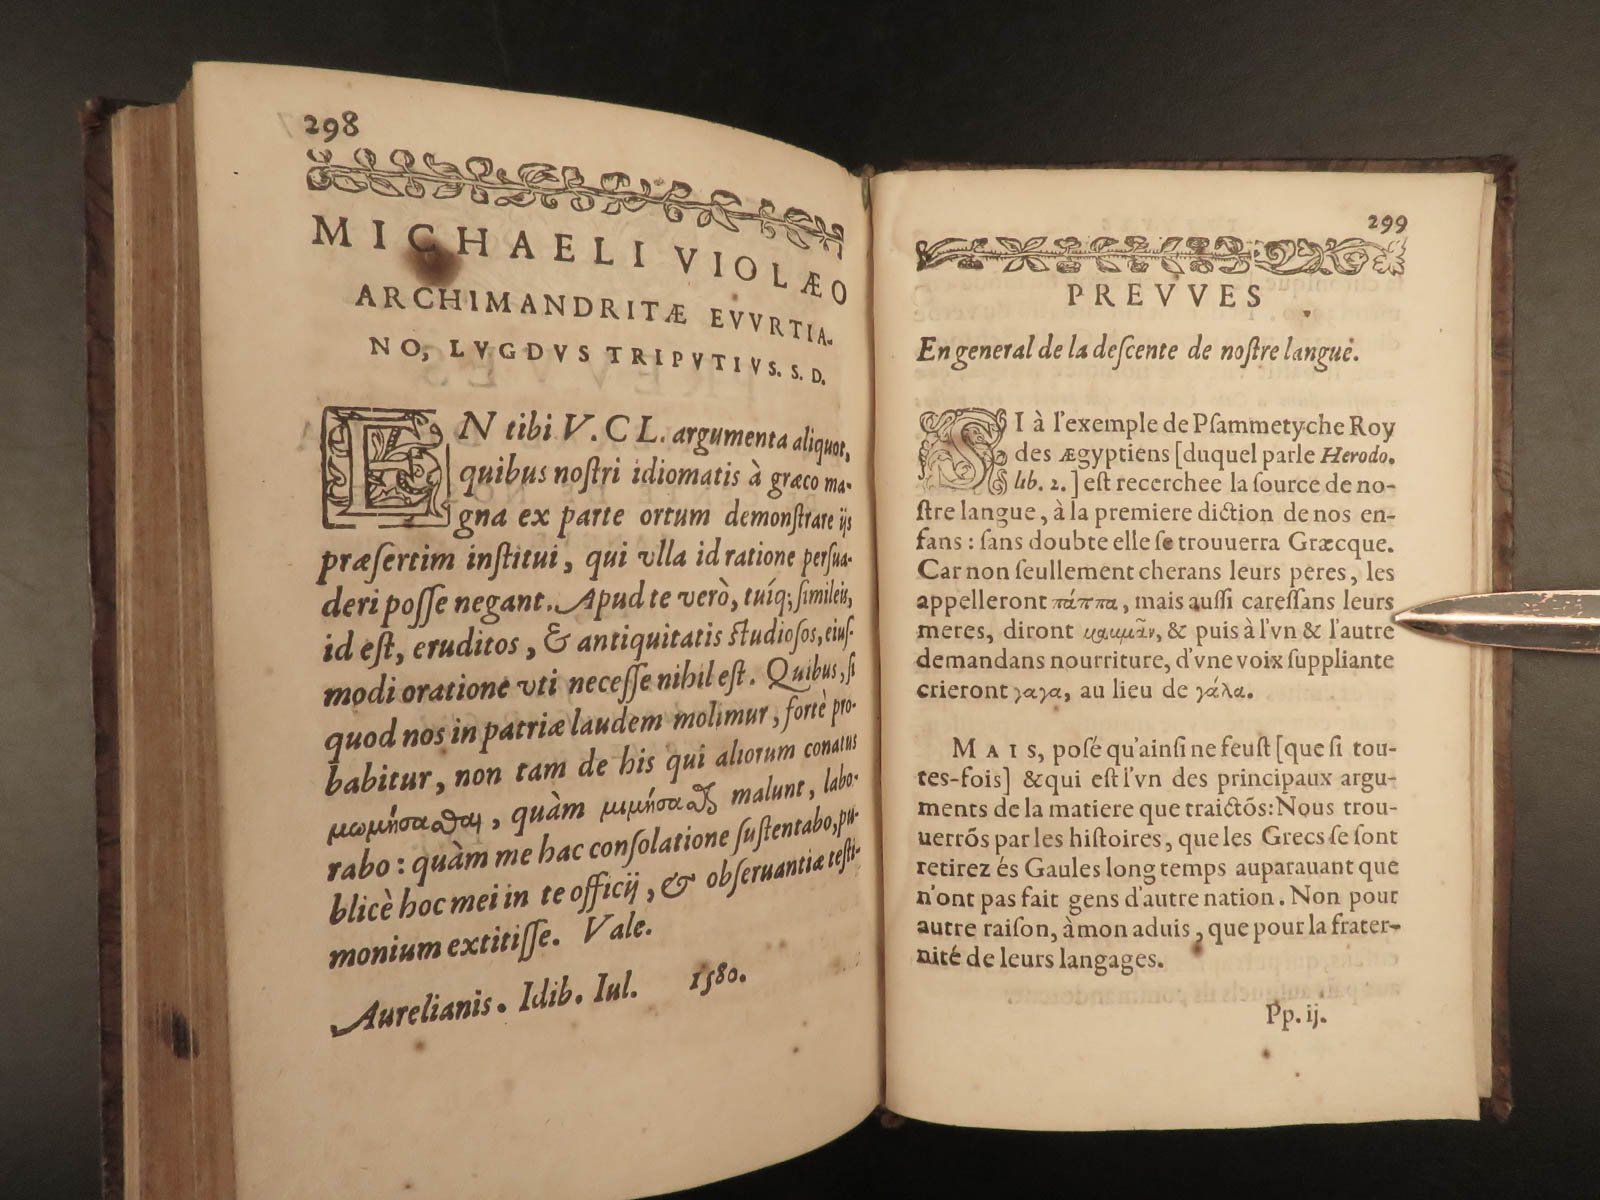 298
MICHAELI VIOLÆO
ARCHIMANDRITÆ EVVRTIA-
NO, LVGDVS TRIPVTIVS. S. D.
EN tibi V. CL. argumenta aliquot,
quibus noſtri idiomatis à græco ma-
gna ex parte ortum demonſtrare ijs
præſertim inſtitui, qui vlla id ratione perſua-
deri poſſe negant. Apud te verò, tuíq; ſimileis,
id eſt, eruditos, & antiquitatis ſtudioſos, eiuſ-
modi oratione vti neceſſe nihil eſt. Quibus, ſi
quod nos in patriæ laudem molimur, fortè pro-
babitur, non tam de his qui aliorum conatus
μωμήσαϑαι, quàm μιμήσαϑαι malunt, labo-
rabo: quàm me hac conſolatione ſuſtentabo, pu-
blicè hoc mei in te officij, & obſeruantiæ teſti-
monium extitiſſe. Vale.
Aurelianis. Idib. Iul. 1580.
299
PREVVES
En general de la deſcente de noſtre langue.
SI à l'exemple de Pſammetyche Roy
des Ægyptiens [duquel parle Herodo.
lib. 2.] eſt recerchee la ſource de no-
ſtre langue, à la premiere diction de nos en-
fans: ſans doubte elle ſe trouuerra Græcque.
Car non ſeullement cherans leurs peres, les
appelleront πάππα, mais auſſi careſſans leurs
meres, diront μαμμᾶν, & puis à l'vn & l'autre
demandans nourriture, d'vne voix ſuppliante
crieront γαγα, au lieu de γάλα.
MAIS, poſé qu'ainſi ne feuſt [que ſi tou-
tes-fois] & qui eſt l'vn des principaux argu-
ments de la matiere que traictõs: Nous trou-
uerrõs par les hiſtoires, que les Grecs ſe ſont
retirez és Gaules long temps auparauant que
n'ont pas fait gens d'autre nation. Non pour
autre raiſon, à mon aduis, que pour la frater-
nité de leurs langages.
Pp. ij.